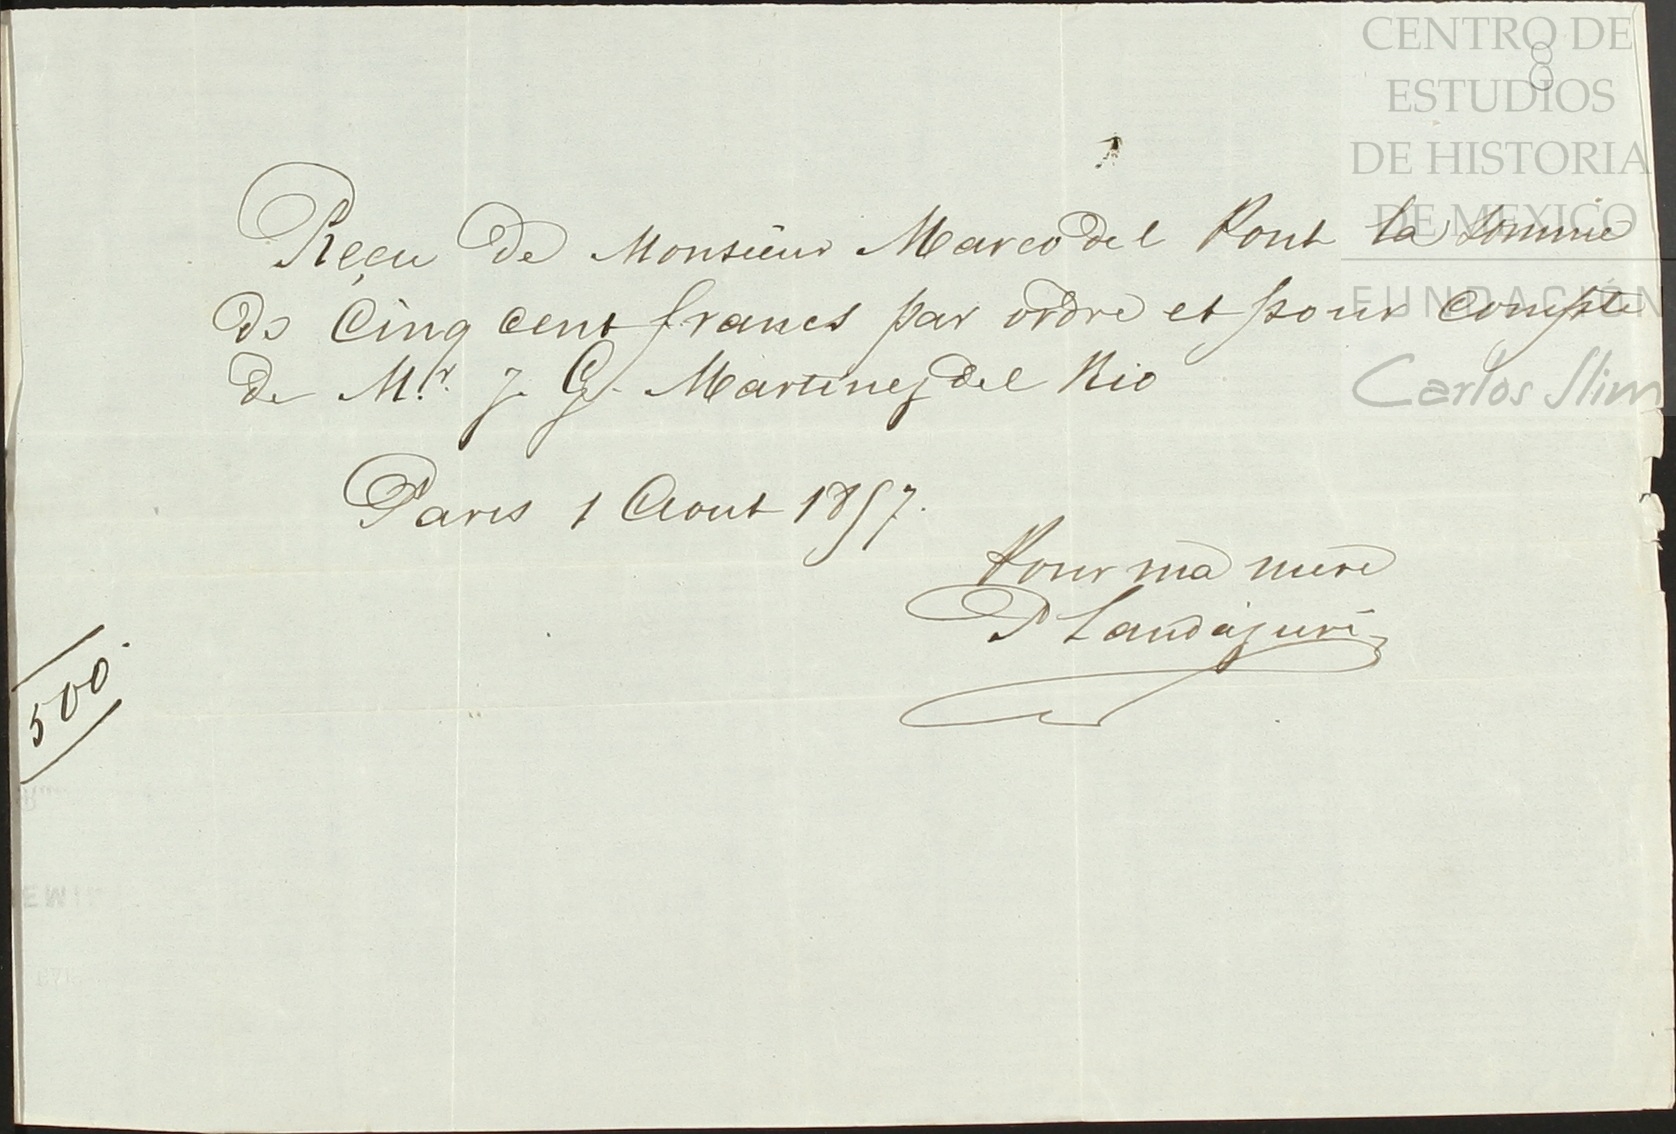 CENTRO DE
ESTUDIOS
DE HISTORIA
DE MEXICO
FUNDACIÓN
Carlos Slim
8
Reçu de Monsieur Marco del Pont la somme
de Cinq cent francs par ordre et pour compte
de Mr. J. G. Martinez del Rio
Paris 1 Aout 1857.
Pour ma mere
P Landazuri
500.